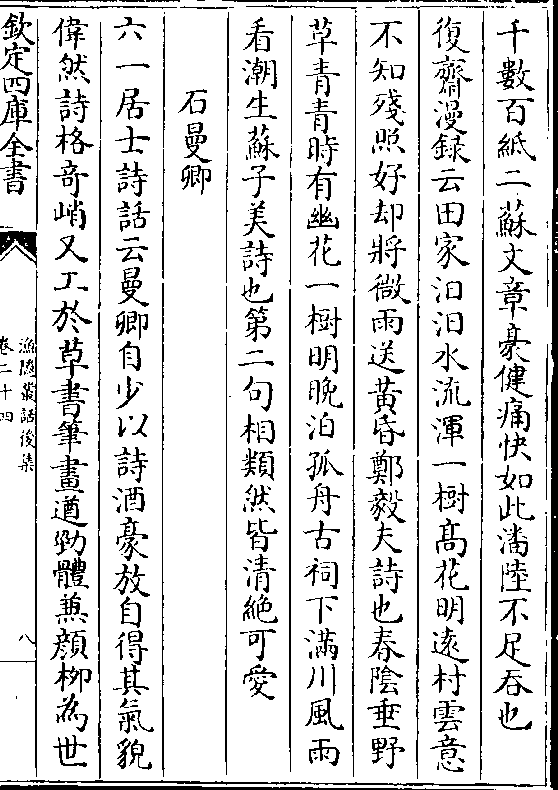 千數百紙二蘇文章豪健痛快如此潘陸不足吞也
復齋漫録云田家汩汩水流渾一樹髙花明逺村雲意
不知殘照好却將微雨送黄昏鄭毅夫詩也春陰垂野
草青青時有幽花一樹明晚泊孤舟古祠下滿川風雨
看潮生蘇子美詩也第二句相類然皆清絶可愛
石曼卿
六一居士詩話云曼卿自少以詩酒豪放自得其氣貌
偉然詩格竒峭又工於草書筆畫遒勁體兼顔柳為世
欽定四庫全書
漁隱叢話後集
卷二十四
八